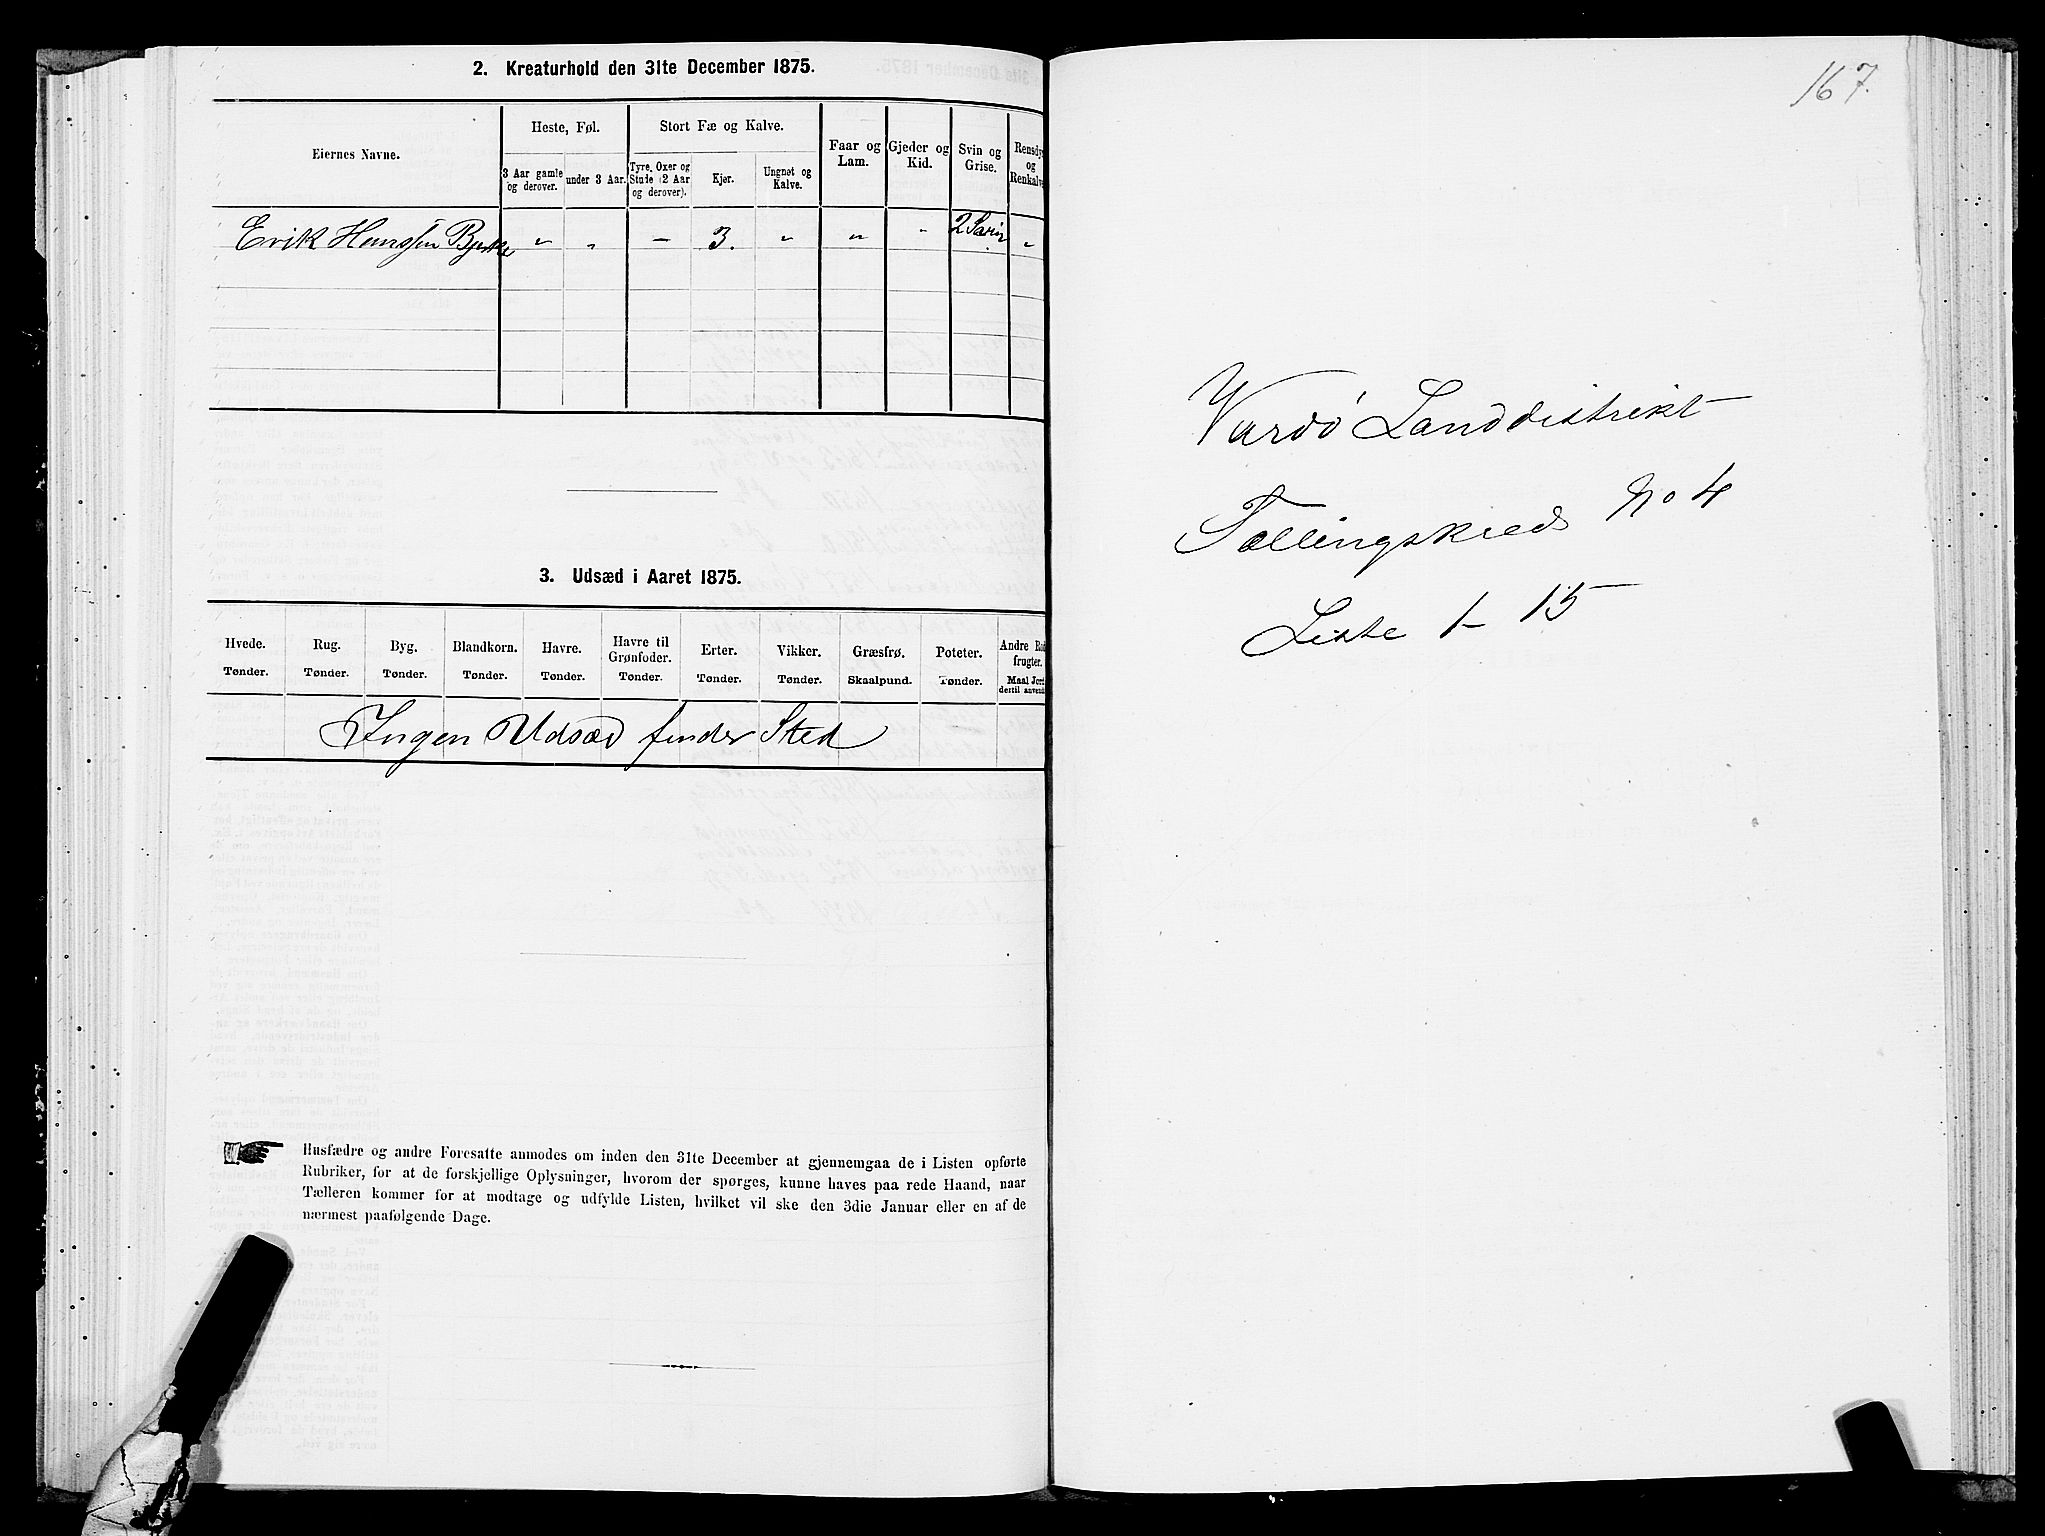 2. Kreaturhold den 31te December 1875.
Eiernes Navne.
Heste, Føl.
Stort Fæ og Kalve.
Faar og Lam.
Gjeder og Kid.
Svin og Grise.
Rensdy og Renkalve
3 Aar gamle og derover.
under 3 Aar.
Tyre, Oxer og Stude (2 Aar og derover).
Kjør.
Ungnøt og Kalve.
Erik Hanssen " " — 3. " " " 2 Svin "
3. Udsæd i Aaret 1875.
Hvede. Rug. Byg. Blandkorn. Havre. Havre til Grønfoder. Erter. Vikker. Græsfrø. Poteter. Andre Ro frugter.
Tønder. Tønder. Tønder. Tønder. Tønder. Tønder. Tønder. Tønder. Skaalpund. Tønder. Maal Jord dertil anvend
Ingen Udsæd finder Sted
Husfædre og andre Foresatte anmodes om inden den 31te December at gjennemgaa de i Listen opførte
Rubriker, for at de forskjellige Oplysninger, hvorom der spørges, kunne haves paa rede Haand, naar
Tælleren kommer for at modtage og udfylde Listen, hvilket vil ske den 3die Januar eller en af de
nærmest paafølgende Dage.
167.
Vardö Landdistrikt
Tællingskreds No 4
Liste 1 - 15